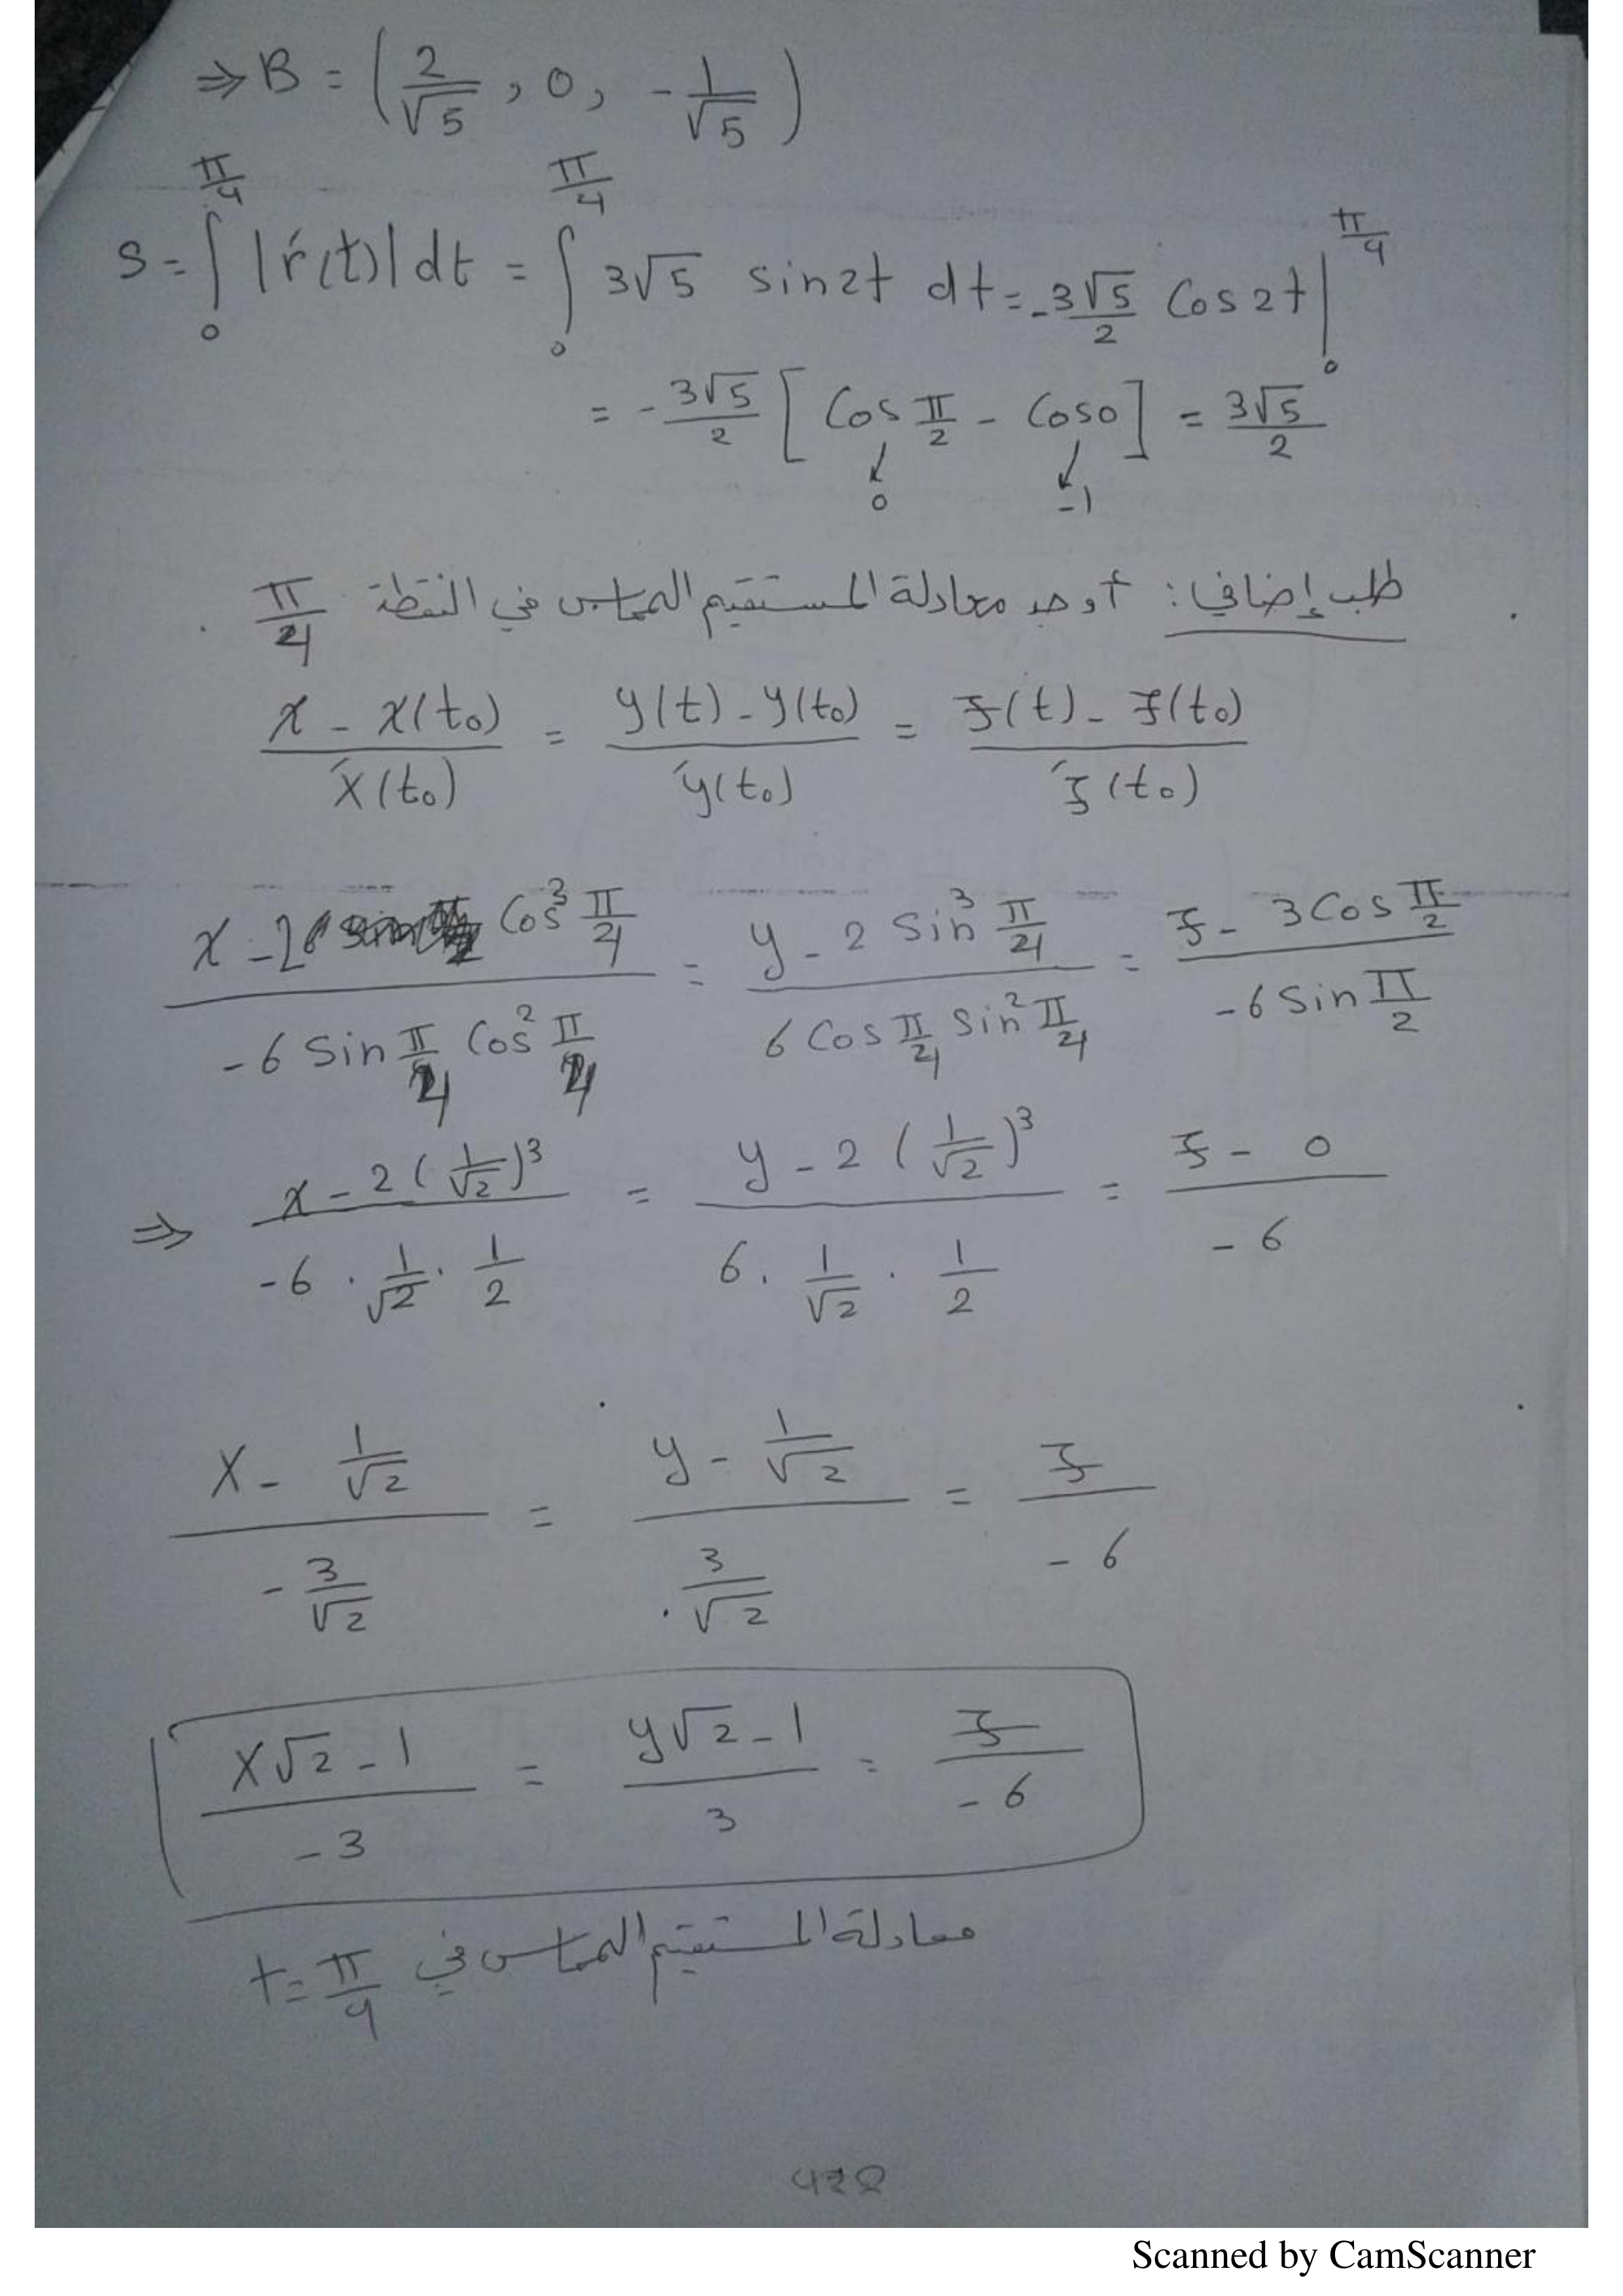 ⇒ B = (2/√5 , 0, -1/√5)
S = ∫₀^{π/4} |ŕ(t)| dt = ∫₀^{π/4} 3√5 sin2t dt = -3√5/2 Cos 2t |₀^{π/4}
= -3√5/2 [Cos π/2 - Cos0] = 3√5/2
0 -1
طلب إضافي: أوجد معادلة المستقيم المماس في النقطة π/4 .
(x - x(t₀))/x́(t₀) = (y(t) - y(t₀))/ý(t₀) = (z(t) - z(t₀))/ź(t₀)
(x - 2 Cos³ π/4)/(-6 Sin π/4 Cos² π/4) = (y - 2 Sin³ π/4)/(6 Cos π/4 Sin² π/4) = (z - 3 Cos π/2)/(-6 Sin π/2)
⇒ (x - 2(1/√2)³)/(-6 · 1/√2 · 1/2) = (y - 2(1/√2)³)/(6 · 1/√2 · 1/2) = (z - 0)/(-6)
(x - 1/√2)/(-3/√2) = (y - 1/√2)/(3/√2) = z/(-6)
(x√2 - 1)/(-3) = (y√2 - 1)/3 = z/(-6)
معادلة المستقيم المماس في t = π/4
Scanned by CamScanner